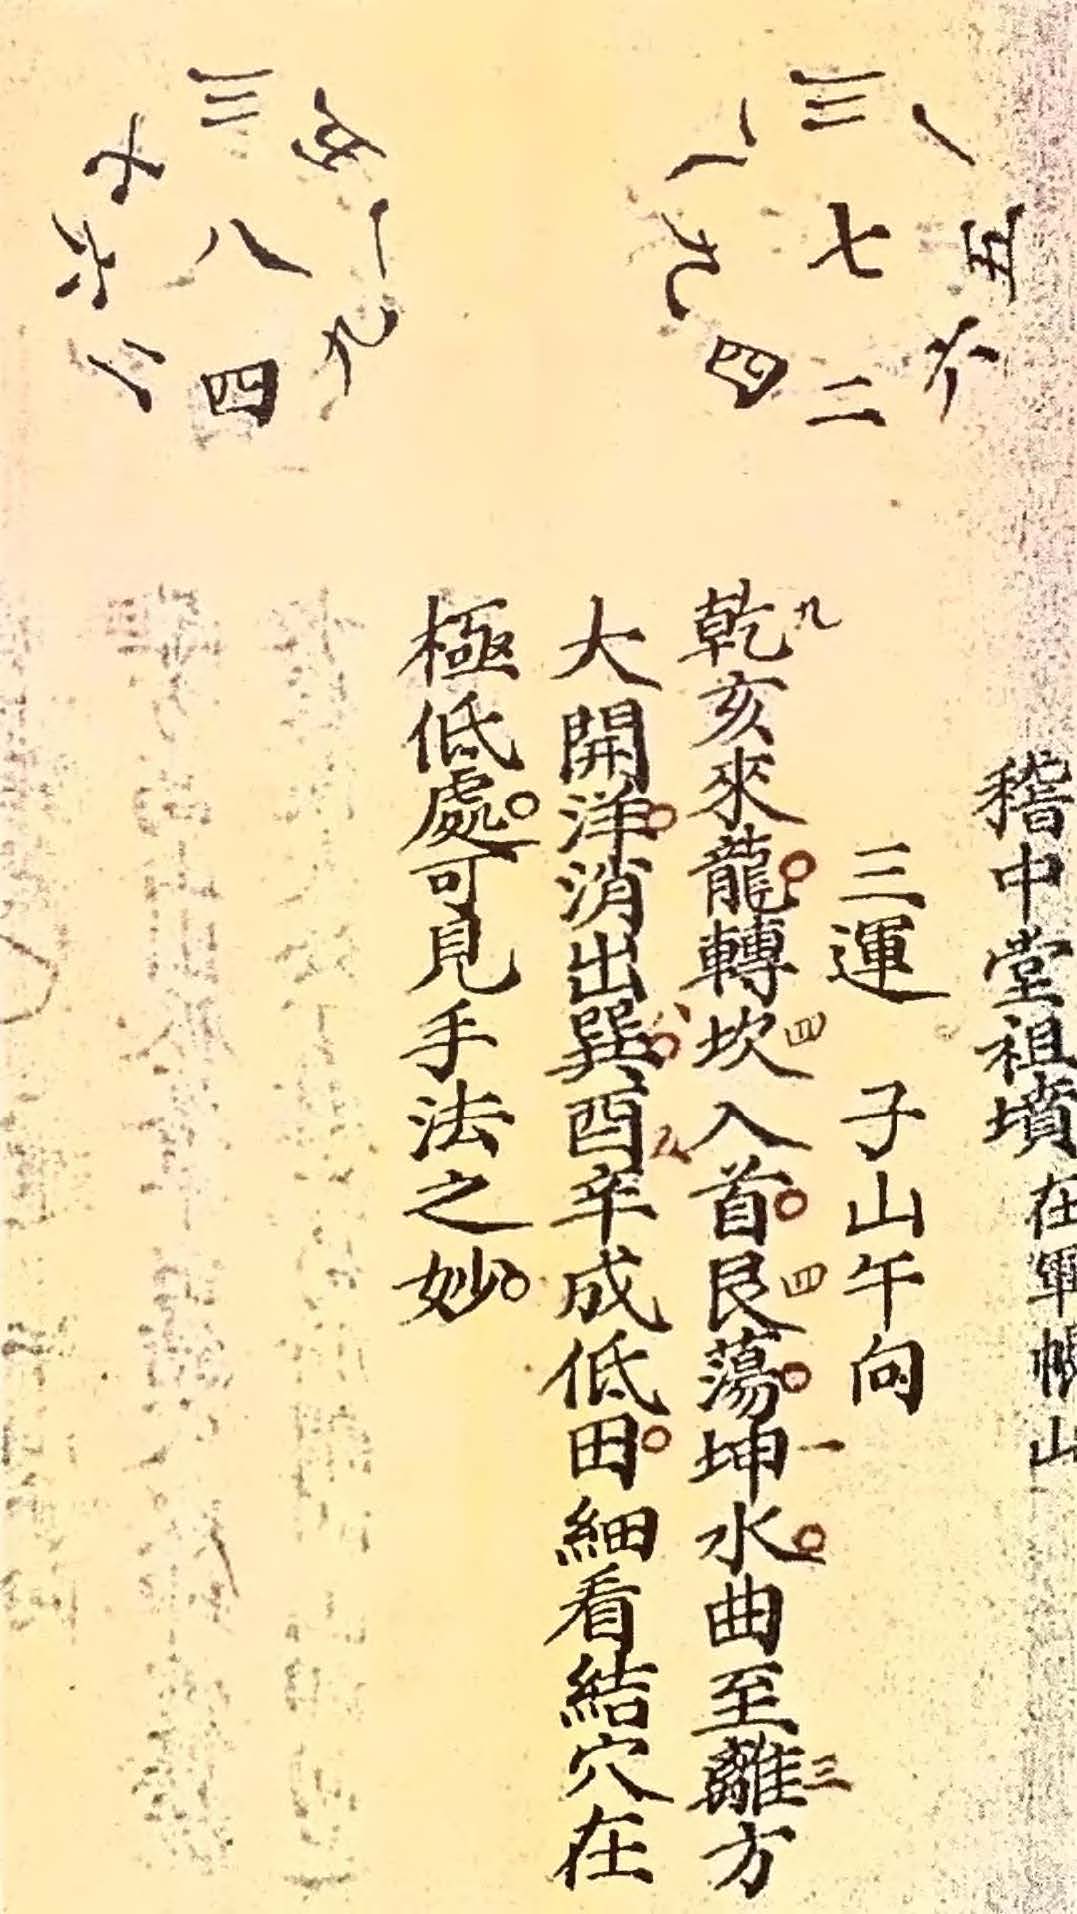 稽中堂祖墳在軍帳山
三運 子山午向
一 三 八
五 七 九
六 二 四
乾九亥來龍轉坎四入首艮四蕩坤一水曲至離三方
大開洋消出巽八酉九辛成低田細看結穴在
極低處可見手法之妙
五 三 七
一 八 六
九 四 二